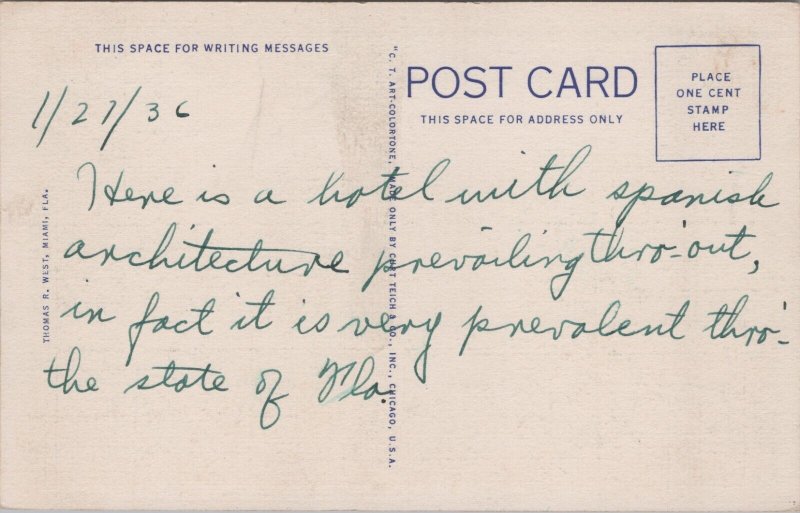 THIS SPACE FOR WRITING MESSAGES
POST CARD
THIS SPACE FOR ADDRESS ONLY
PLACE
ONE CENT
STAMP
HERE
1/27/36
Here is a hotel with spanish
architecture prevailing thro-out,
in fact it is very prevalent thro-
the state of Fla.
THOMAS R. WEST, MIAMI, FLA.
"C. T. ART-COLORTONE, MADE ONLY BY CURT TEICH & CO., INC., CHICAGO, U.S.A.